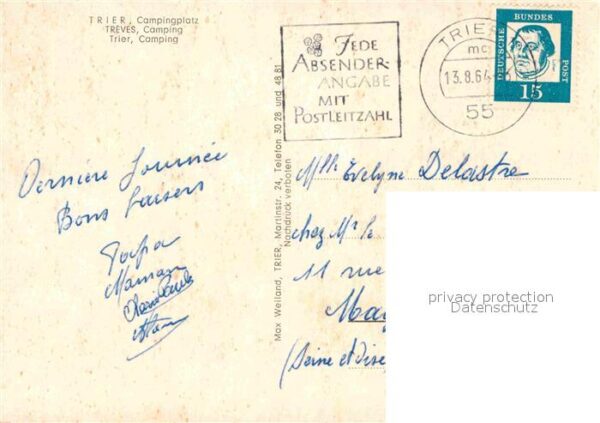 TRIER, Campingplatz
TREVES, Camping
Trier, Camping
JEDE
ABSENDER-
ANGABE
MIT
POSTLEITZAHL
TRIER
mc
13.8.64
55
DEUTSCHE
BUNDES
POST
15
Max Weiland, TRIER, Martinstr. 24, Telefon 30 28 und 48 81
Nachdruck verboten
Dernière Journée
Bons baisers
Papa
Maman
Mlle Evelyne Delastre
chez Mr le
11 rue
Mag
(Seine et Oise
privacy protection
Datenschutz